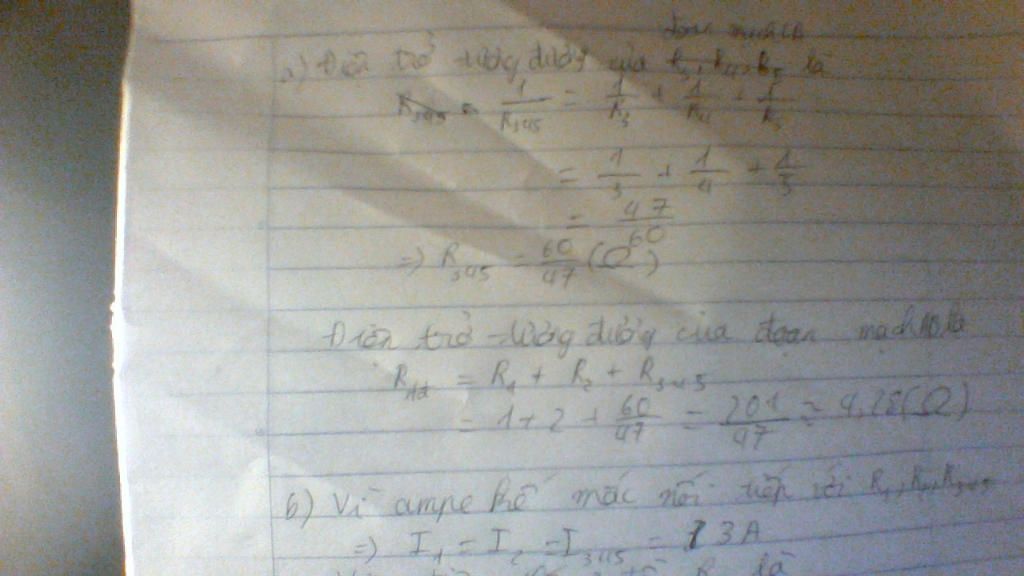 đoạn mạch CB
a) Điện trở tương đương của R₃, R₄, R₅ là
R₃₄₅ = 1/R₃₄₅ = 1/R₃ + 1/R₄ + 1/R₅
= 1/3 + 1/4 + 1/5
= 47/60
=> R₃₄₅ = 60/47 (Ω)
Điện trở tương đương của đoạn mạch AB là
R_tđ = R₁ + R₂ + R₃₄₅
= 1 + 2 + 60/47 = 201/47 ≈ 4,28(Ω)
b) Vì ampe kế mắc nối tiếp với R₁, R₂, R₃₄₅
=> I₁ = I₂ = I₃₄₅ = 3A
R là